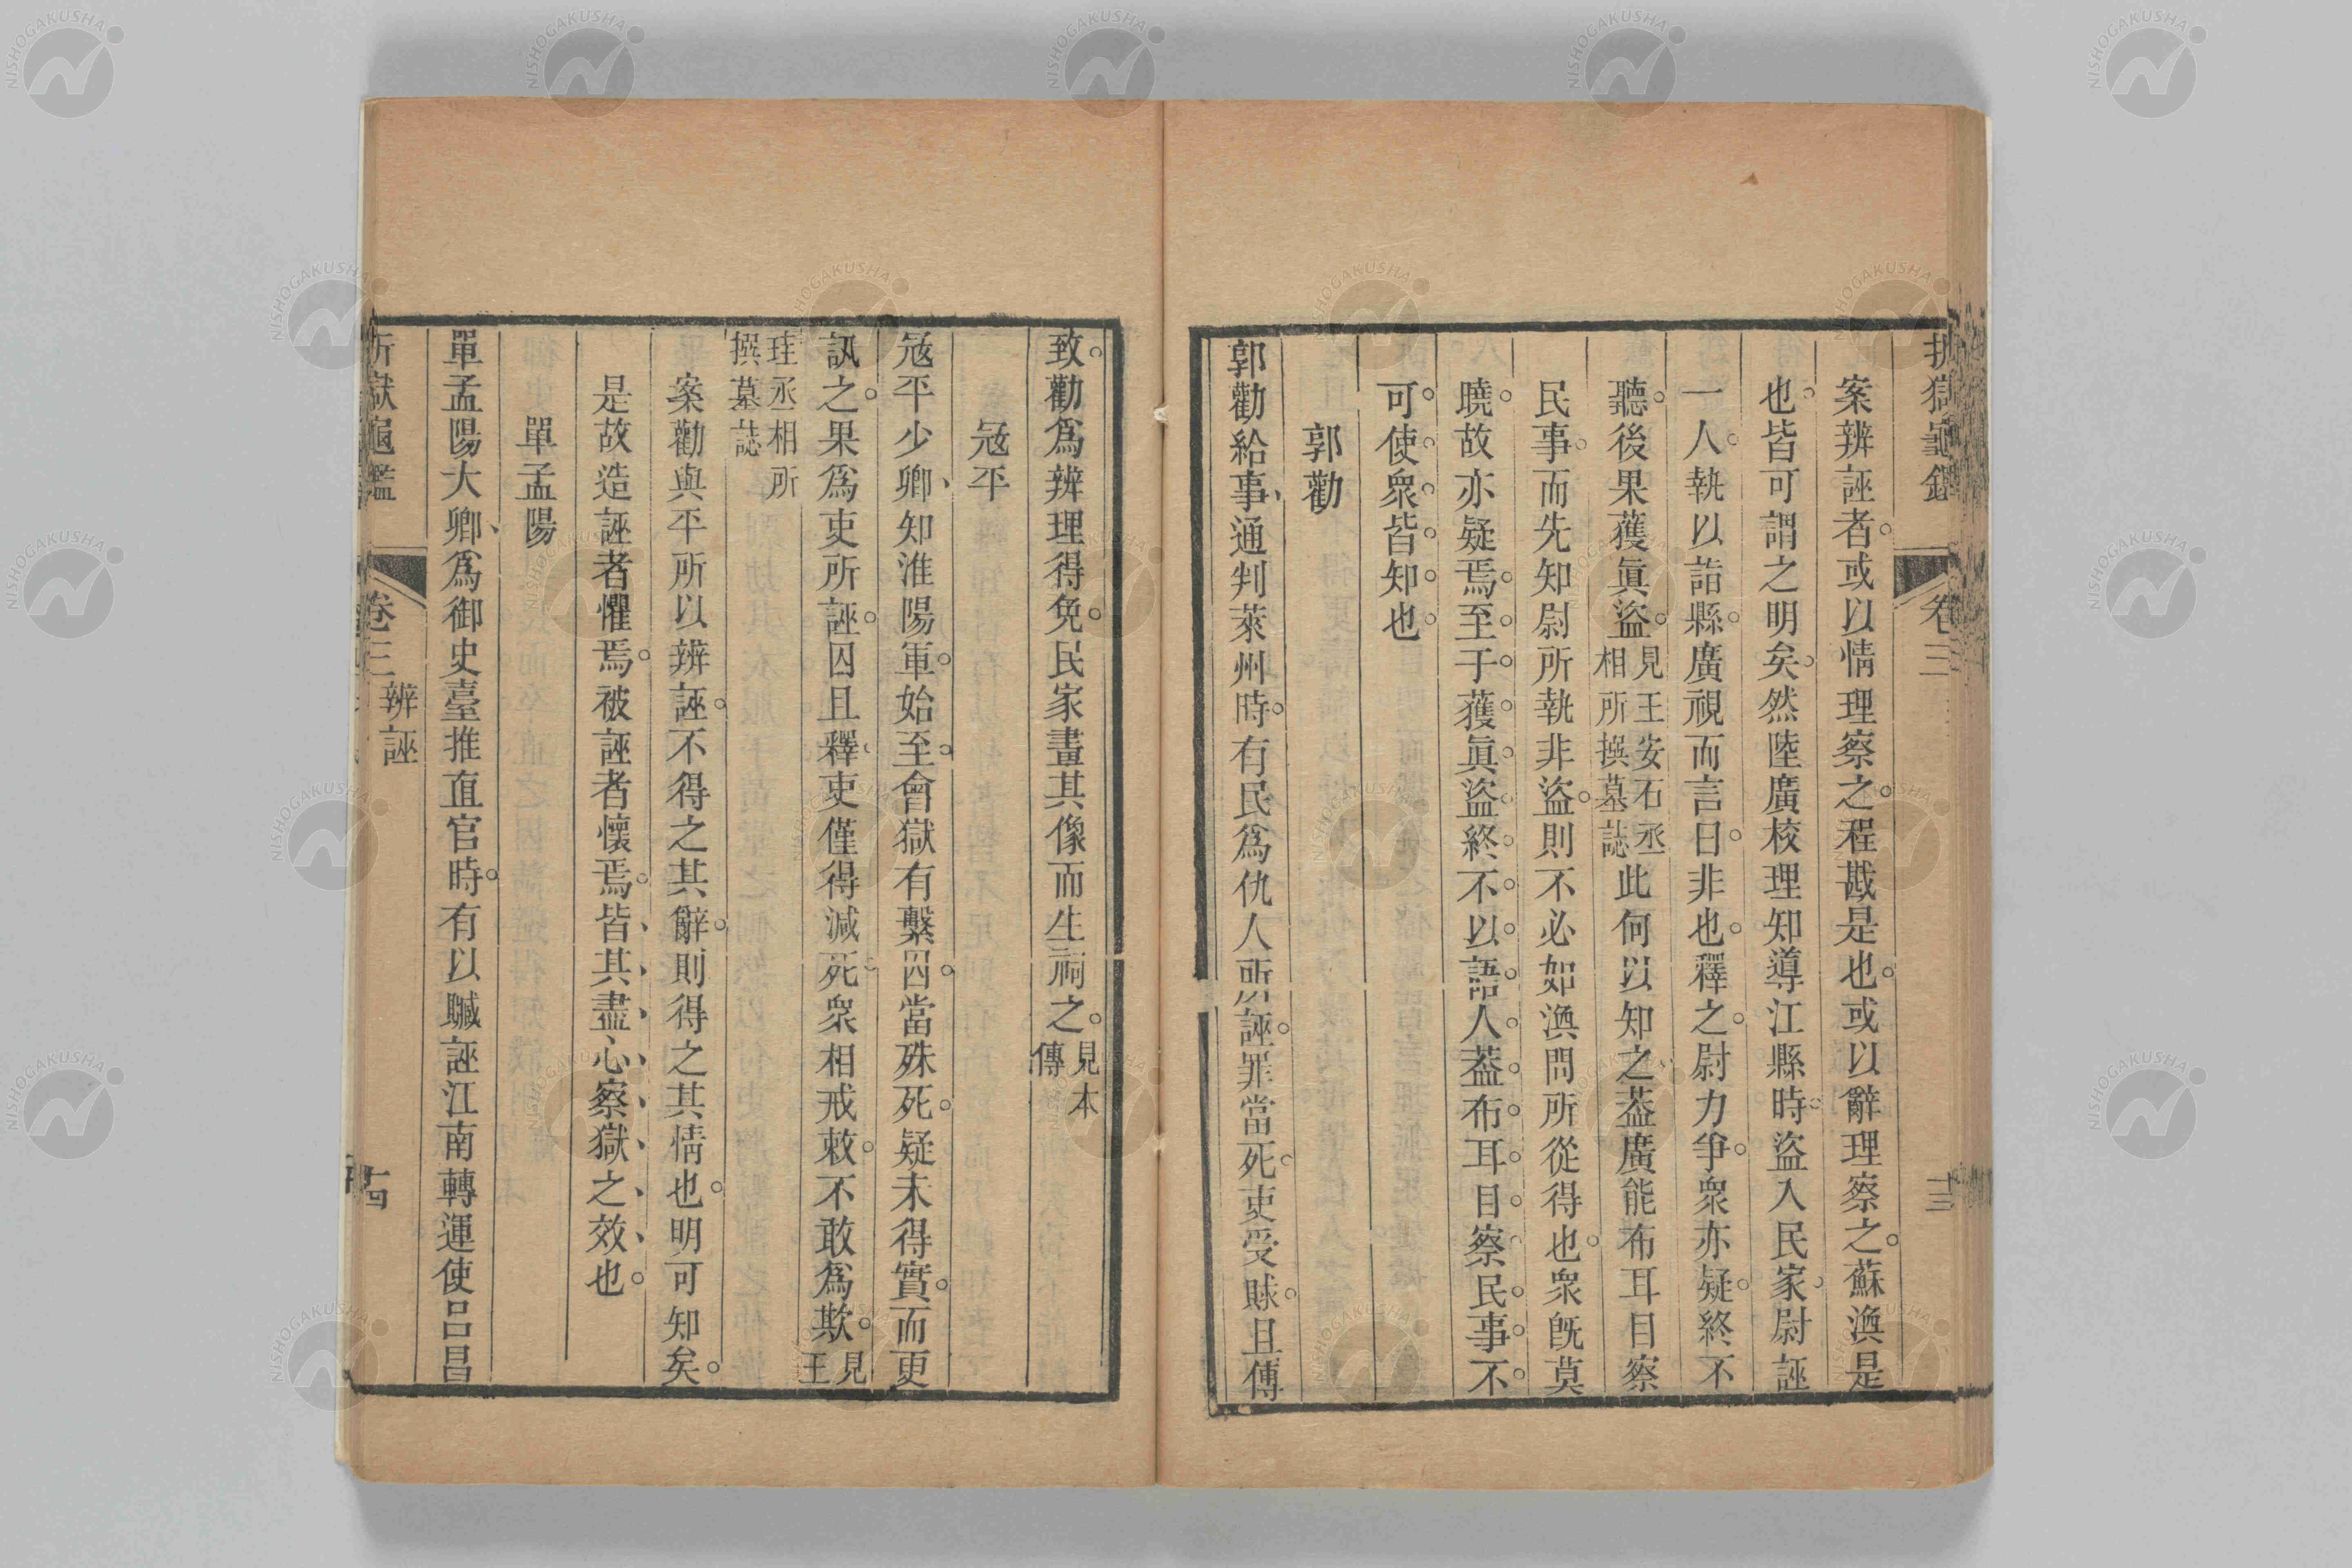 折獄龜鑑
卷三
十三
案辨誣者或以情理察之程戡是也或以辭理察之蘇渙是
也皆可謂之明矣然陸廣校理知導江縣時盜入民家尉誣
一人執以詣縣廣視而言曰非也釋之尉力爭衆亦疑終不
聽後果獲眞盜見王安石丞相所撰墓誌此何以知之葢廣能布耳目察
民事而先知尉所執非盜則不必如渙問所從得也衆旣莫
曉故亦疑焉至于獲眞盜終不以語人葢布耳目察民事不
可使衆皆知也
郭勸
郭勸給事通判萊州時有民爲仇人所誣罪當死吏受賕且傅
致勸爲辨理得免民家畫其像而生祠之見本傳
寇平
寇平少卿知淮陽軍始至會獄有繫囚當殊死疑未得實而更
訊之果爲吏所誣囚且釋吏僅得減死衆相戒敕不敢爲欺見王
珪丞相所撰墓誌
案勸與平所以辨誣不得之其辭則得之其情也明可知矣
是故造誣者懼焉被誣者懷焉皆其盡心察獄之效也
單孟陽
單孟陽大卿爲御史臺推直官時有以贓誣江南轉運使呂昌
折獄龜鑑
卷三
辨誣
十四
NISHOGAKUSHA